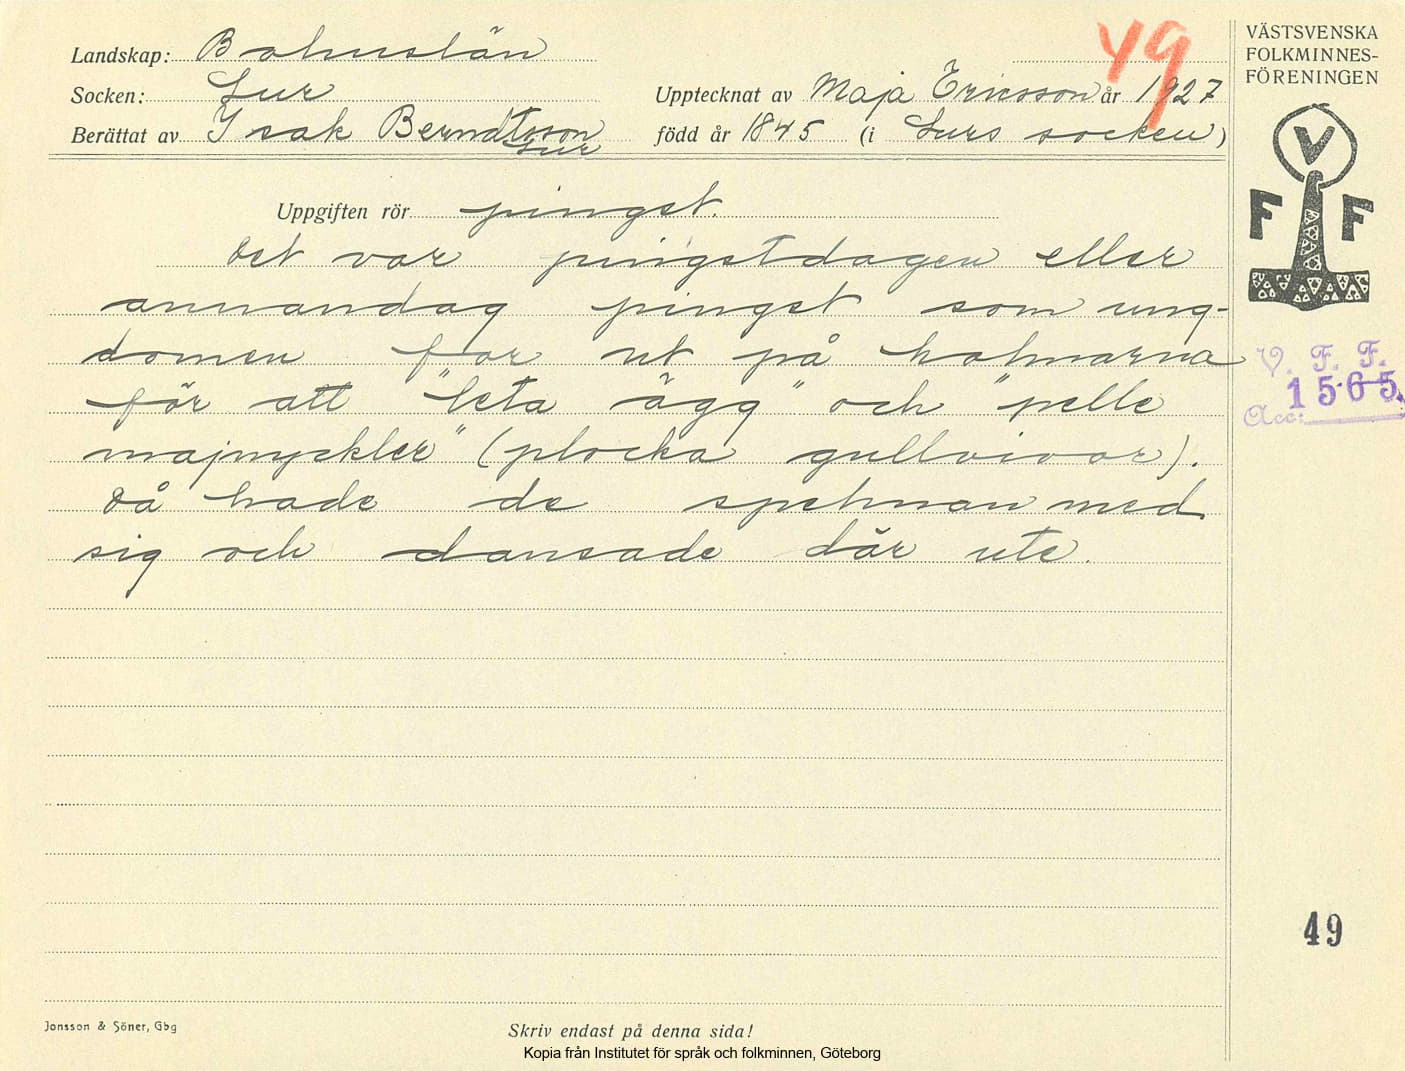 Landskap: Bohuslän
49
Socken: Lur
Upptecknat av Maja Ericsson år 1927
Berättat av Isak Berndtsson
Lur
född år 1845 (i Lurs socken)
Uppgiften rör pingst.
Det var pingstdagen eller
annandag pingst som ung-
domen for ut på holmarna
för att "leta ägg" och "pelle
majnyckler" (plocka gullvivor).
Då hade de spelman med
sig och dansade där ute.
VÄSTSVENSKA
FOLKMINNES-
FÖRENINGEN
V
F F
V. F. F.
1565.
Acc:
49
Jonsson & Söner, Gbg
Skriv endast på denna sida!
Kopia från Institutet för språk och folkminnen, Göteborg